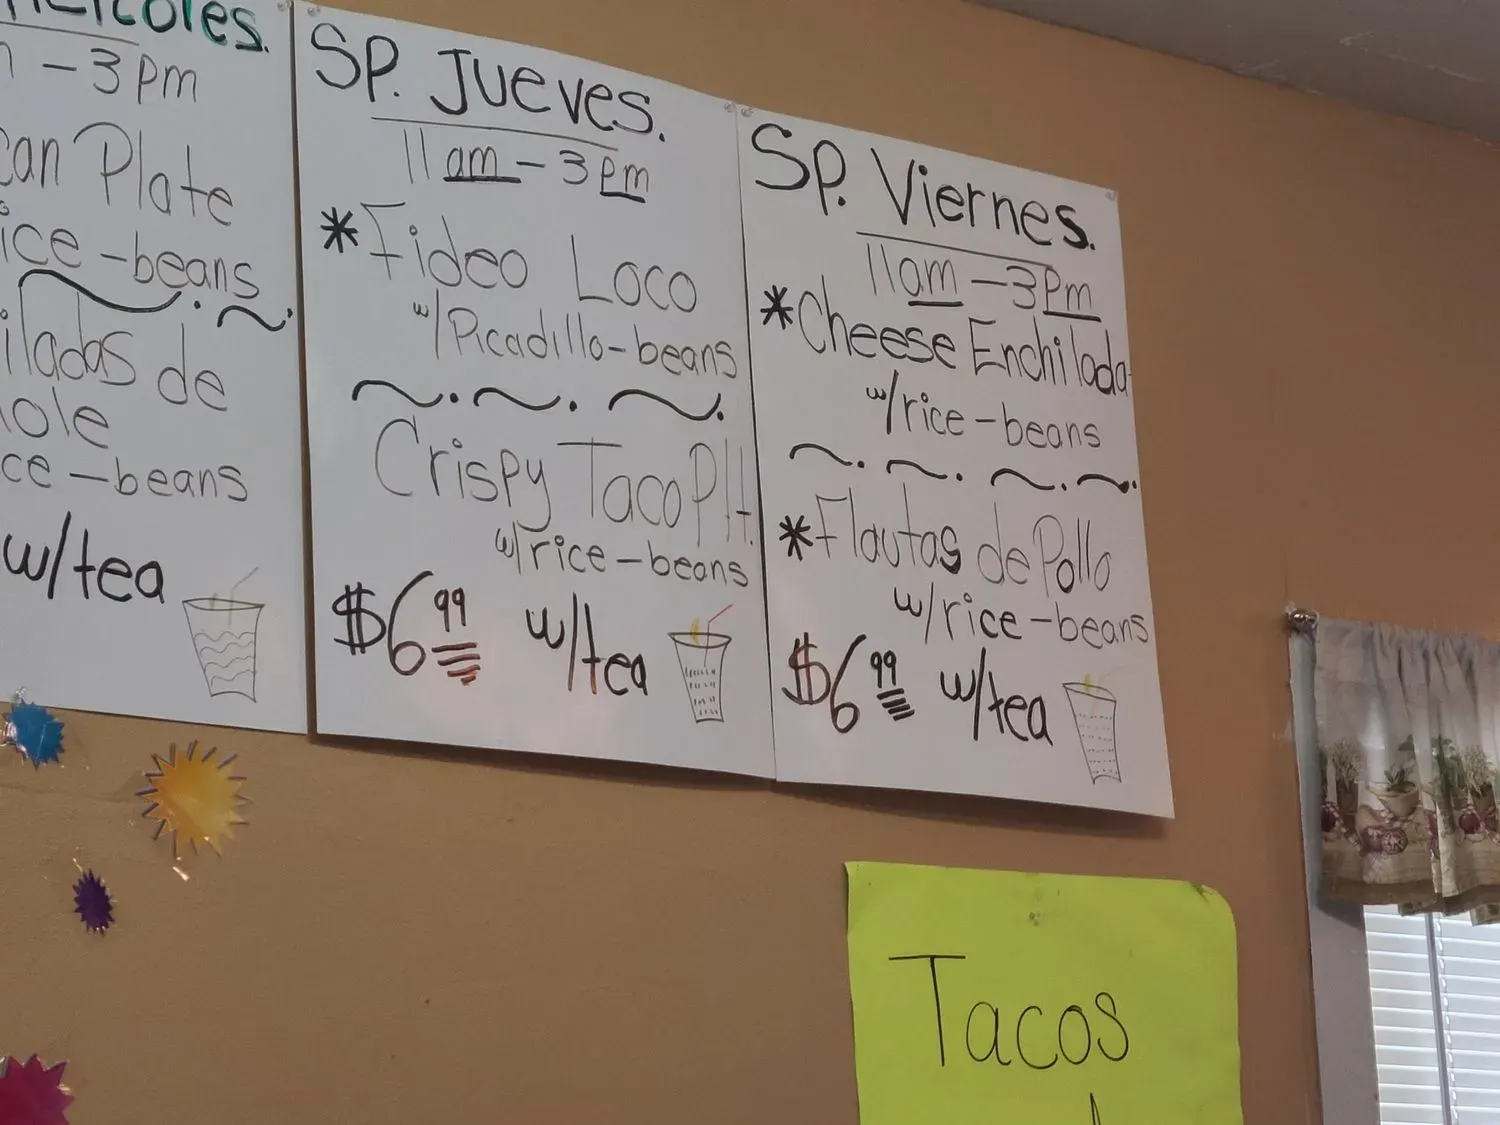 - 3pm
Plate
-beans
de
-beans
w/tea
SP. Jueves.
11am - 3pm
*Fideo Loco
w/Picadillo-beans
Crispy Taco Plt.
w/rice-beans
$6.99 w/tea
SP. Viernes.
11am - 3Pm
*Cheese Enchilada
w/rice-beans
*Flautas de Pollo
w/rice-beans
$6.99 w/tea
Tacos